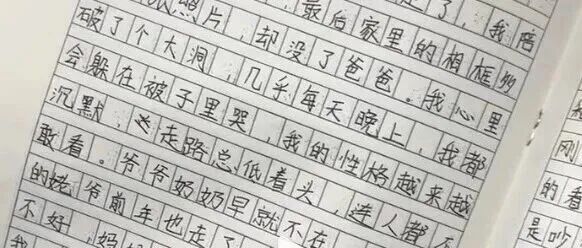 走了，我陪
最后家里的相框多
照片，却没了爸爸。我心里
破了个大洞，几乎每天晚上，我都
会躲在被子里哭，我的性格越来越
沉默，走路总低着头，连人都不
敢看。爷爷奶奶早就不在
的姥爷前年也走了
不好，妈妈
刚
的看
是吵